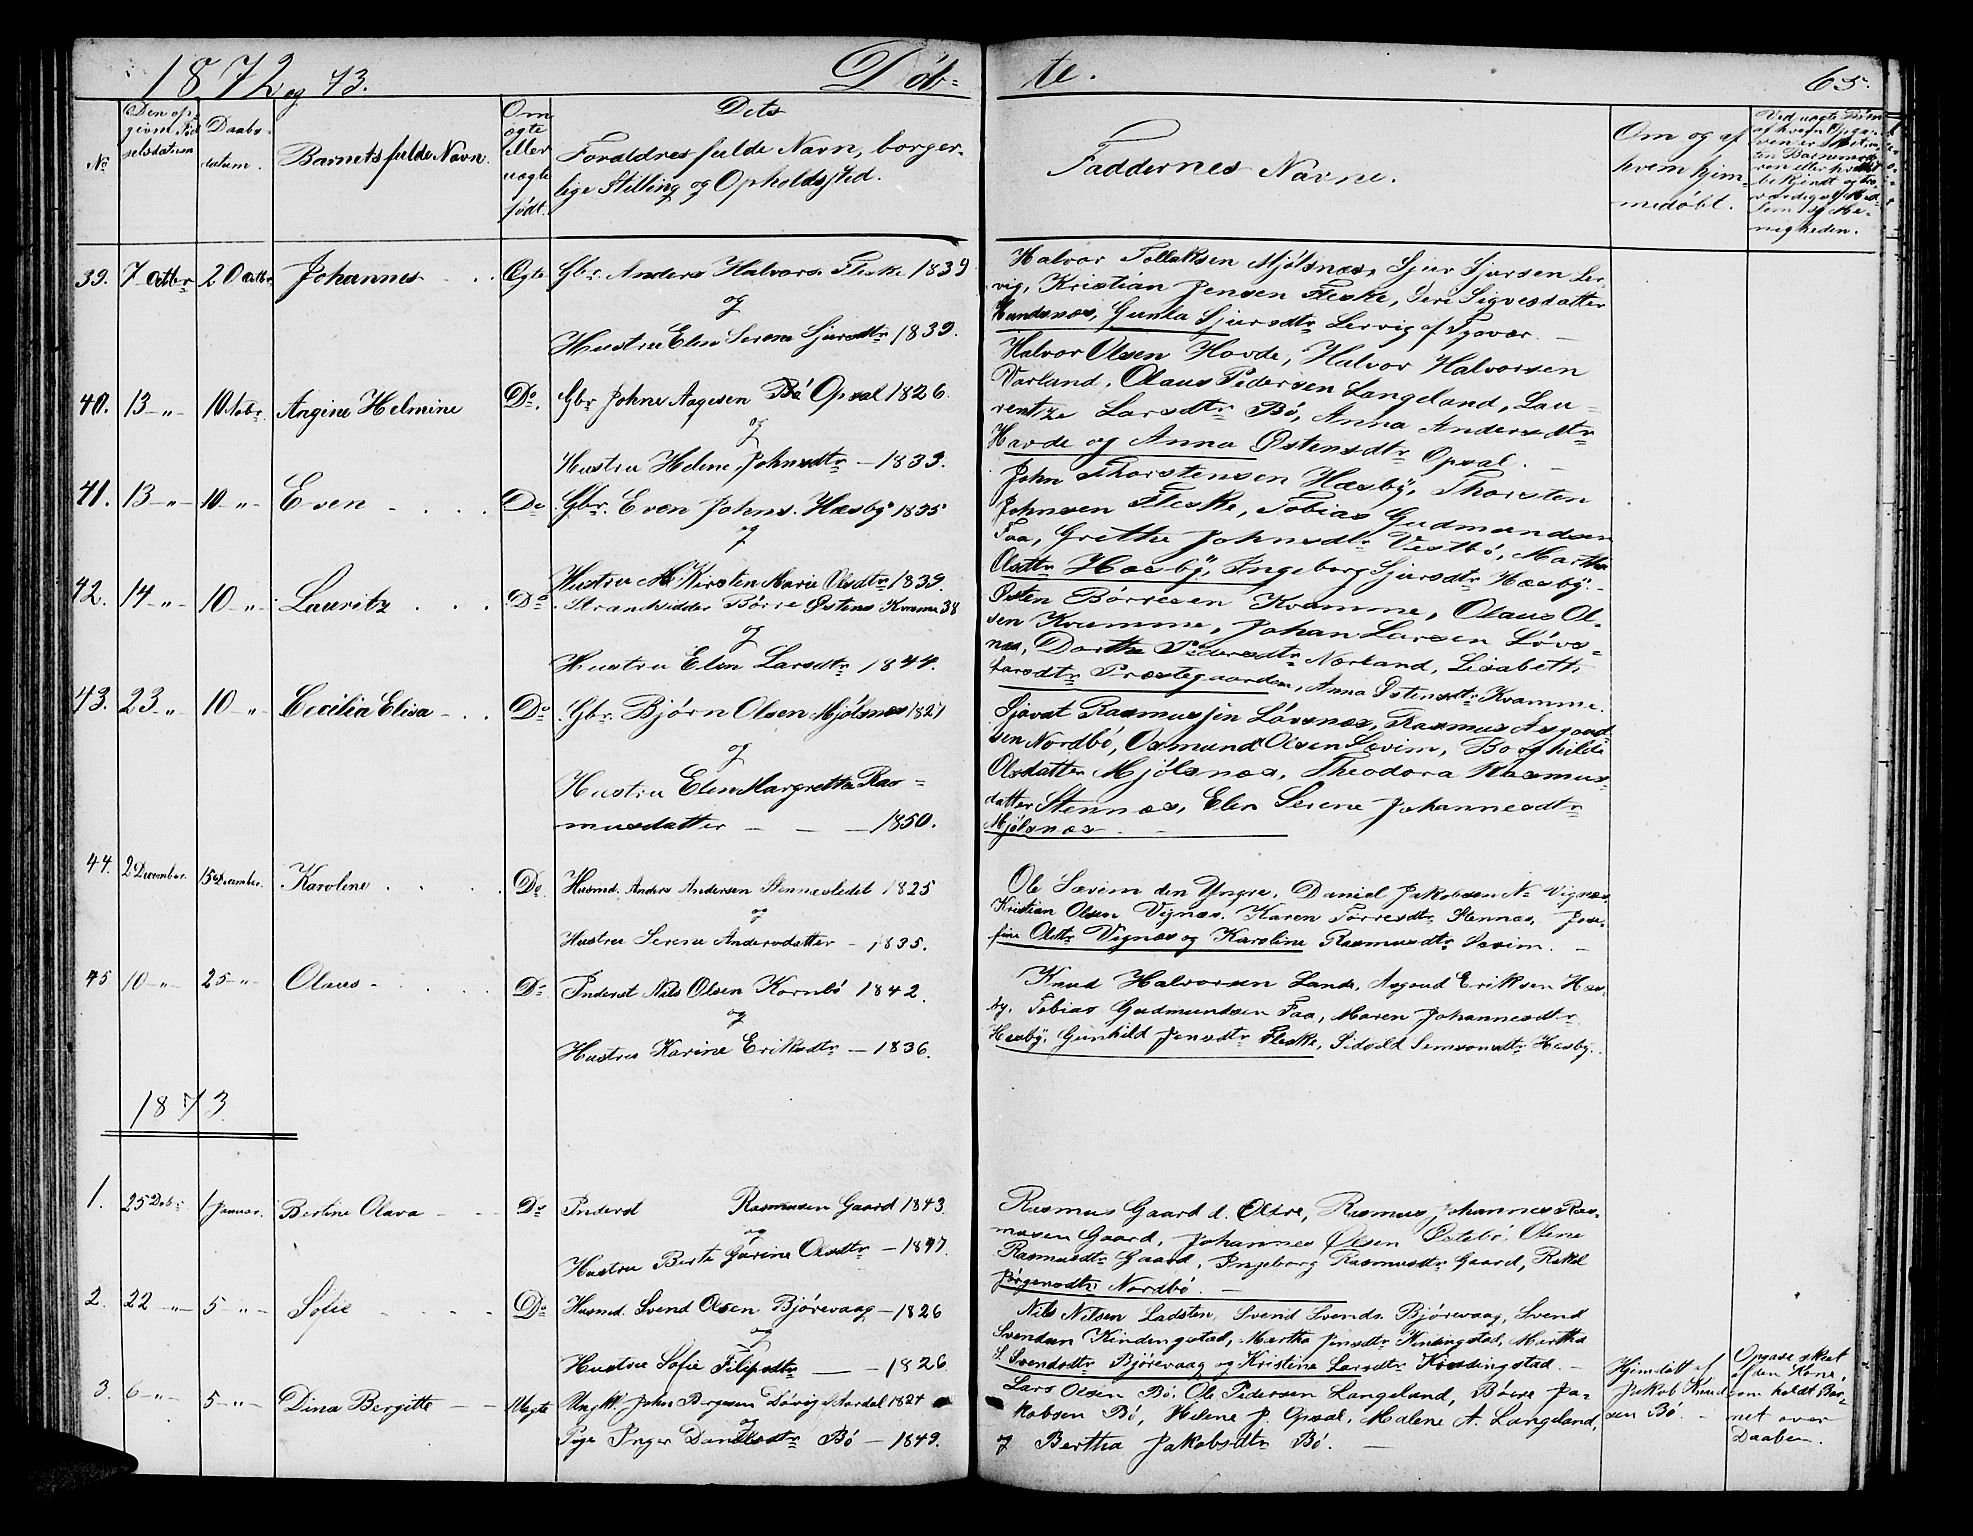 1872 og 73.
Døb=
te.
65.
No
Den op=
givne Fød
selsdatum
Daabs=
datum.
Barnets fulde Navn.
Om
ægte
eller
uægte
født.
Dets
Forældres fulde Navn, borger=
lige Stilling og Opholdssted.
Faddernes Navne.
Om og af
hvem hjem=
medøbt.
Ved uægte Børn
af hvem Opga=
ven er
ten Barnemod
ren eller
bekjendt og tro=
værdige
nigheden.
39. 7 Octbr 20 Octbr Johannes Ægte Gbr. Anders Halvors. Fleske 1839
og
Hustru Elen Serene Sjursdtr 1839.
Halvor Tollaksen Mjølsnæs, Sjur Sjursen Ler=
vig, Kristian Jensen Fleske, Siri Sigvesdatter
Hundsnæs, Gunla Sjursdtr Lervig af Tysvær.
40. 13 - " - 10 Nobr. Angine Helmine Do. Gbr Johns Aagesen Bø Opsal 1826
og
Hustru Helene Johnsdtr - 1833.
Halvor Olsen Hovde, Halvor Halvorsen
Varland, Olaus Pedersen Langeland, Lau=
rentze Larsdtr Bø, Anna Andersdtr
Havde og Anna Østensdtr Opsal.
41. 13 - " - 10 - " - Even Do Gbr. Even Johns. Hæsby 1835
og
Hustru Kirsten Marie Olsdtr 1839.
John Thorstensen Hæsby, Thorsten
Johnsen Fleske, Tobias Gudmundsen
Faa, Grethe Johnsdtr Vestbø, Martha
Olsdtr Hæsby, Ingeborg Sjursdtr Hæsby.
42. 14 - " - 10 - " - Lauritz Do Strandsidder Børre Østens Kvamme 38
og
Hustru Elen Larsdtr 1844.
Østen Børresen Kvamme, Olaus Ol=
sen Kvamme, Johan Larsen Løvs=
næs, Dorthe Pedersdtr Norland, Lisabeth
Larsdtr Præstegaarden, Anna Østensdtr Kvamme.
43. 23 - " - 10 - " - Cecilia Elisa Do Gbr. Bjørn Olsen Mjølsnæs 1827
og
Hustru Elen Margretha Ras=
musdatter - - - 1850.
Sjovat Rasmussen Løvsnæs, Rasmus Asgaut=
sen Nordbø, Osmund Olsen Sævim, Borghilde
Olsdatter Mjølsnæs, Theodora Rasmus
datter Stennæs, Elen Serene Johannesdtr
Mjølsnæs
44. 2 December. 15 December. Karoline Do Husmd. Anders Andersen Stennæsledet 1825
og
Hustru Serene Andersdatter - 1835.
Ole Sævim den Yngre, Daniel Jakobsen N. Vignæs,
Kristian Olsen Vignæs, Karen Torresdtr Stennæs, Jose=
fine Olsdtr Vignæs og Karoline Rasmusdtr Sævim.
45 10 - " - 25 - " - Olaus Do Inderst Nils Olsen Kornbø 1842.
og
Hustru Karine Eriksdtr - 1836.
Knud Halvorsen Lande, Asgaud Eriksen Hæs=
by, Tobias Gudmundsen Faa, Maren Johannesdtr
Hæsby, Gunhild Jensdtr Fleske, Sidsel Semsonsdtr Hæsby.
1873
1. 25 Debr 1 Januar. Bertine Olava Do Inderst Rasmusen Gaard 1843
og
Hustru Berte Gurine Olsdtr - 1847.
Rasmus Gaard d. Eldre, Rasmus, Johannes Ras=
musen Gaard, Johannes Olsen Østebø, Olene
Rasmusdtr Gaard, Ingeborg Rasmusdtr Gaard, Rakel
Jørgensdtr Nordbø.
2. 22 - " - 5 - " - Sofie Do Husmd. Svend Olsen Bjørevaag - 1826
og
Hustru Sofie Filipsdtr - 1826
Nils Nilsen Ladsten, Svend Svends. Bjørevaag, Svend
Svendsen Kindingstad, Martha Jensdtr Kindingstad, Martha
S. Svendsdtr Bjørevaag og Kristine Larsdtr Kindingstad.
3. 6 - " - 5 - " - Dina Bergitte Uægte Ungk. John Børgesen Løvig Aardal 1824
og
Pige Inger Danielsdtr Bø - 1849.
Lars Olsen Bø, Ole Pedersen Langeland, Børre Ja=
kobsen Bø, Helene J. Opsal, Malene A. Langeland,
og Bertha Jakobsdtr Bø.
Hjemdøbt af
Jakob Knud
sen Bø.
Opgave skeet
af den Kone,
som holdt Bar=
net over
Daaben.